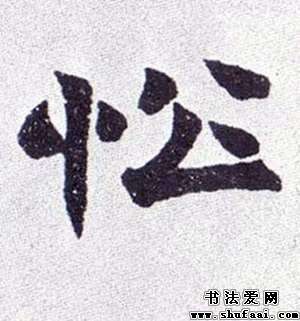 忪
书法爱网
www.shufaai.com